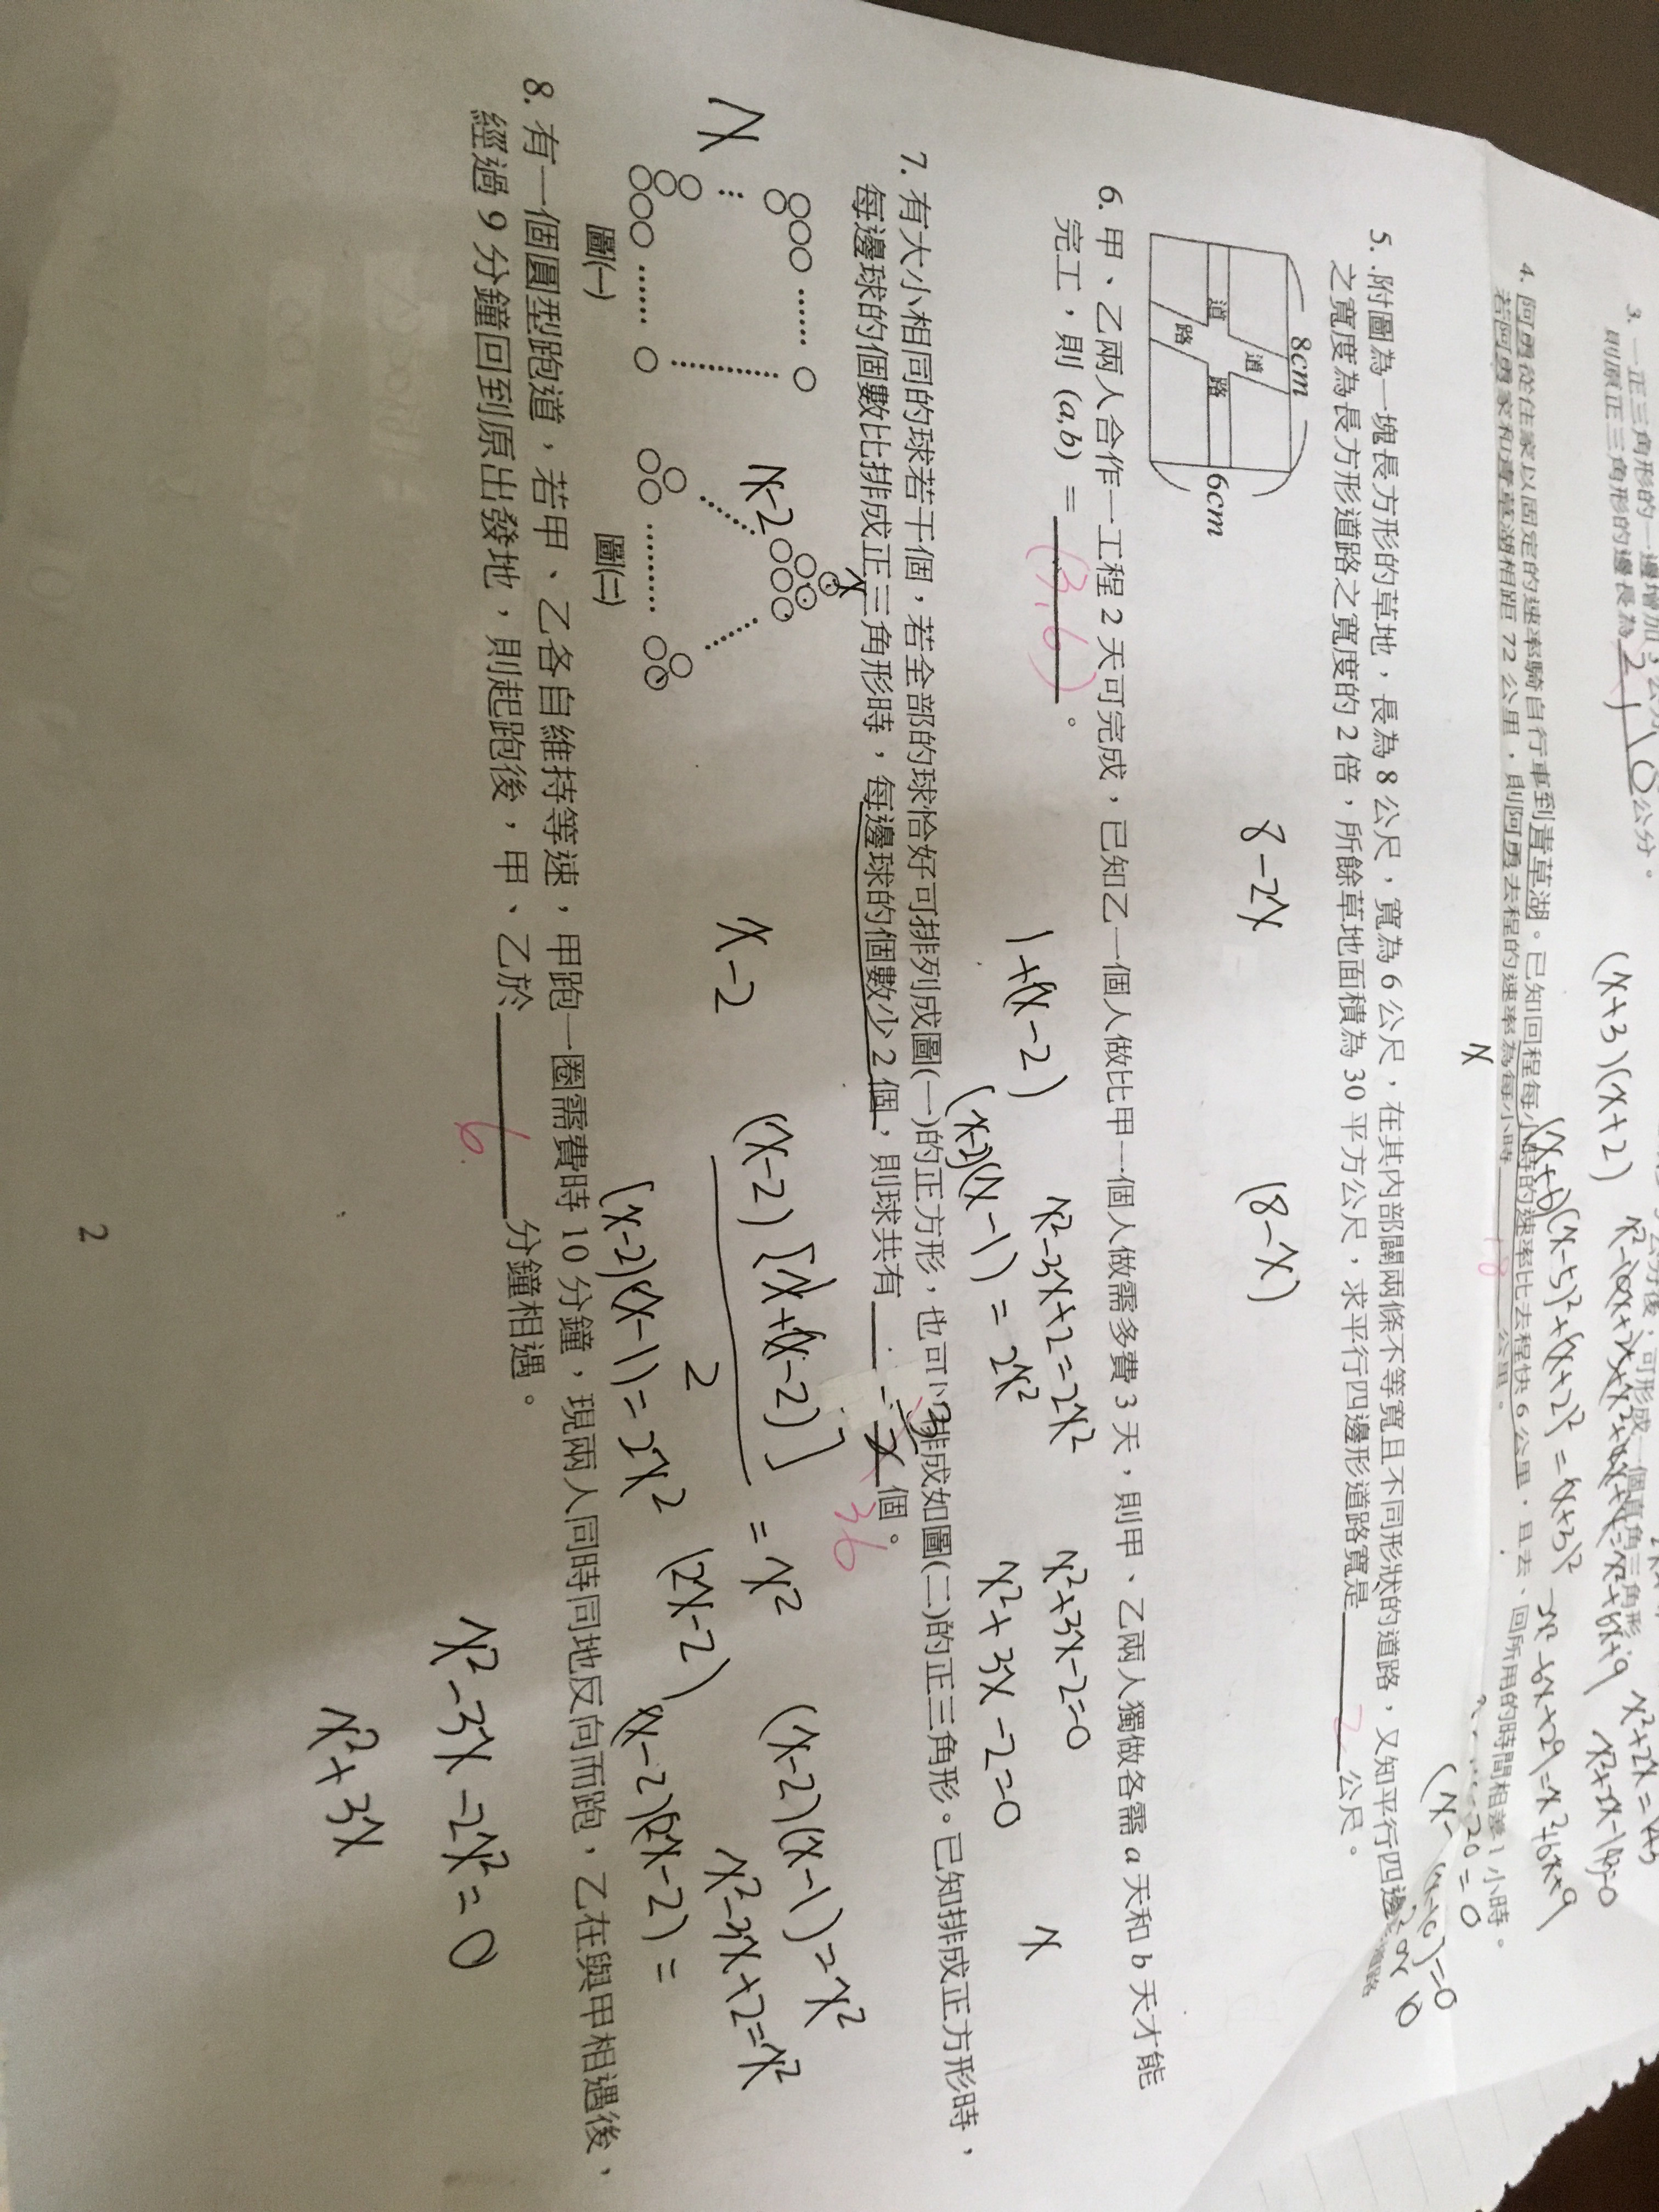 3. 一正三角形的一邊增加3公分
則原正三角形的邊長為 公分。
(x+3)(x+2)
4. 阿勇從住家以固定的速率騎自行車到青草湖。已知回程每小時的速率比去程快 6 公里,且去、回所用的時間相差 1 小時。
若阿勇家和青草湖相距 72 公里,則阿勇去程的速率為每小時 18 公里。
x
5. 附圖為一塊長方形的草地,長為 8 公尺,寬為 6 公尺,在其內部闢兩條不等寬且不同形狀的道路,又知平行四邊
之寬度為長方形道路之寬度的 2 倍,所餘草地面積為 30 平方公尺,求平行四邊形道路寬是 2 公尺。
8cm
6cm
道路
道路
8-2x
(8-x)
6. 甲、乙兩人合作一工程 2 天可完成,已知乙一個人做比甲一個人做需多費 3 天,則甲、乙兩人獨做各需 a 天和 b 天才能
完工,則 (a,b) = (3,6) 。
1+(x-2)
x²-3x+2=2x²
x²+3x-2=0
x
(x-2)(x-1)=2x²
x²+3x-2=0
7. 有大小相同的球若干個,若全部的球恰好可排列成圖(一)的正方形,也可以排成如圖(二)的正三角形。已知排成正方形時,
每邊球的個數比排成正三角形時,每邊球的個數少 2 個,則球共有 個。
36
x
x-2
x
x-2
(x-2)[x+(x-2)]
2
= x²
(x-2)(x-1)=x²
x²-3x+2=x²
(x-2)(x-1)=2x²
(2x-2)
(x-2)(2x-2)=
圖(一)
圖(二)
8. 有一個圓型跑道,若甲、乙各自維持等速,甲跑一圈需費時 10 分鐘,現兩人同時同地反向而跑,乙在與甲相遇後,
經過 9 分鐘回到原出發地,則起跑後,甲、乙於 6 分鐘相遇。
x²-3x-2x²=0
x²+3x
2